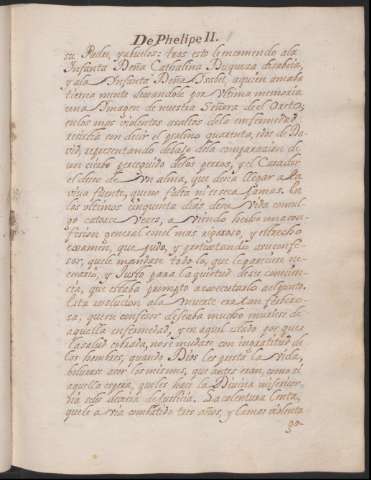 De Phelipe II.
su Padre, y abuelos: tras esto le encomendo a la
Infanta Doña Cathalina Duquesa de Sabóia,
y a la Infanta Doña Isabel, a quien amaba
tierna mente dexandole por ultima memoria
una Imagen de nuestra Señora de el Orto;
en los mas violentos asaltos de la enfermedad
resistia con decir el psalmo quarenta, i dos de Da-
vid, representando debajo de la comparazion de
un ciebo perseguido de los perros, y el Cazador
el deseo de Un alma, que deséa llegar a la
viva fuente, que no falta ni se seca Jamas. En
los ultimos cinquenta dias de su Vida comul-
gó catorce veces, a viendo hecho una con-
fesion general con el mas rigoroso, y estrecho
examen, que pudo, y protestando a su confe-
sor, que le mandase todo lo, que le pareciere ne-
cesario, y Justo para la quietud de su concien-
cia, que estaba prompto a executarlo al punto.
Esta resolucion a la muerte era tan ferboro-
sa, que su confesor deseaba mucho muriese de
aquella enfermedad, y en aquel estado por que a
la salud cobrada, no se mudase con ingratitud de
los hombres, quando Dios les presta la vida,
bolviendo a ser los mismos, que antes eran, como si
aquella espera, que les hace la Divina misericor-
dia no se diera de Justicia. La calentura lenta,
que le a via combatido tres años, y llamas violenta
go-